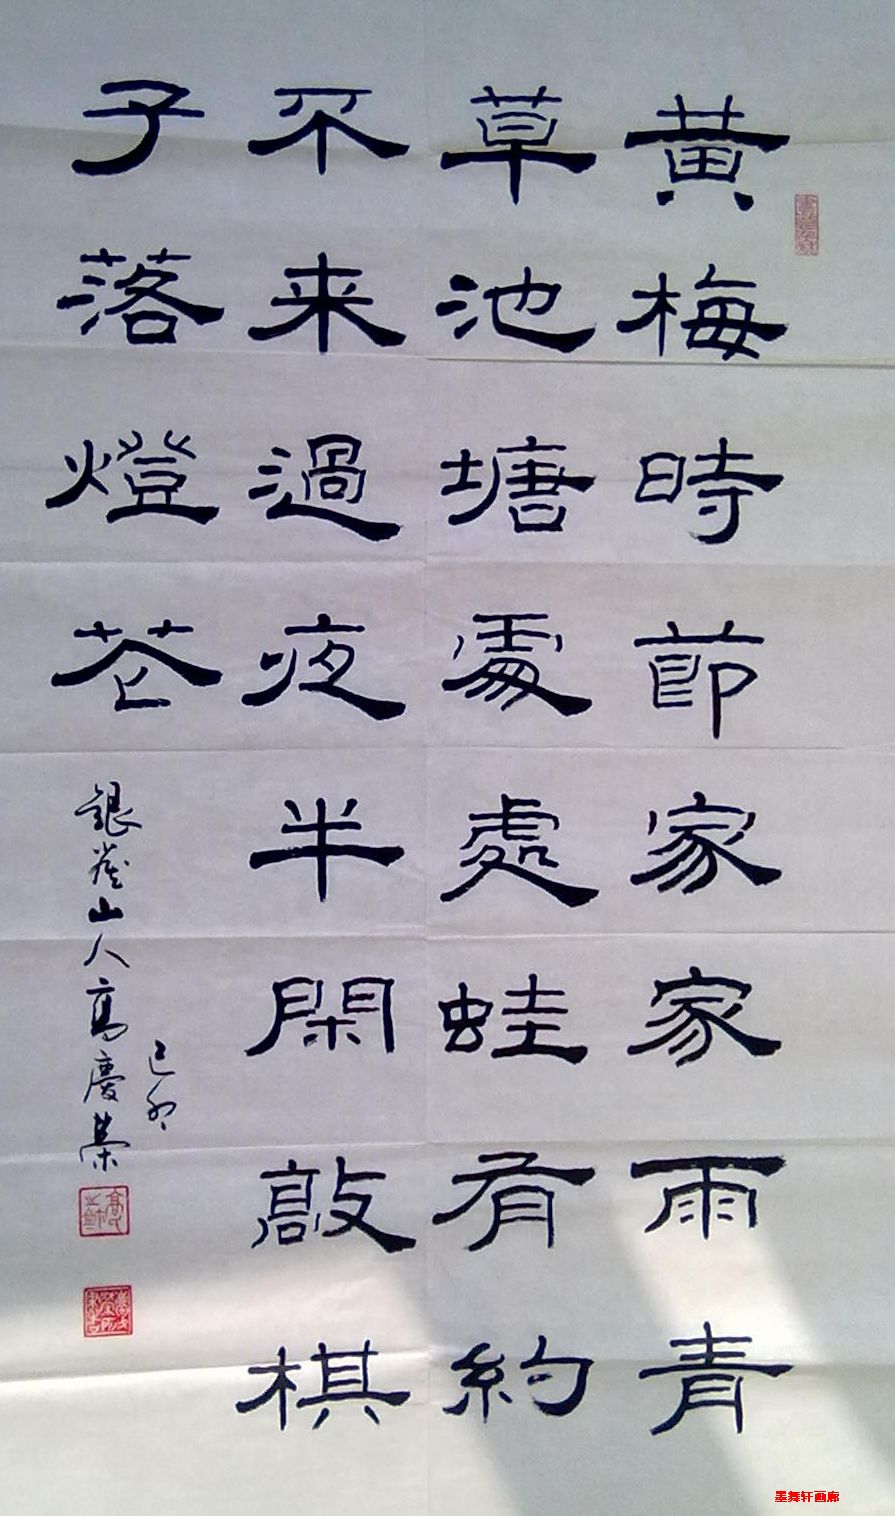 黄梅時節家家雨青
草池塘處處蛙有約
不来過夜半閑敲棋
子落燈花
己卯
銀雀山人高慶榮
墨舞轩画廊